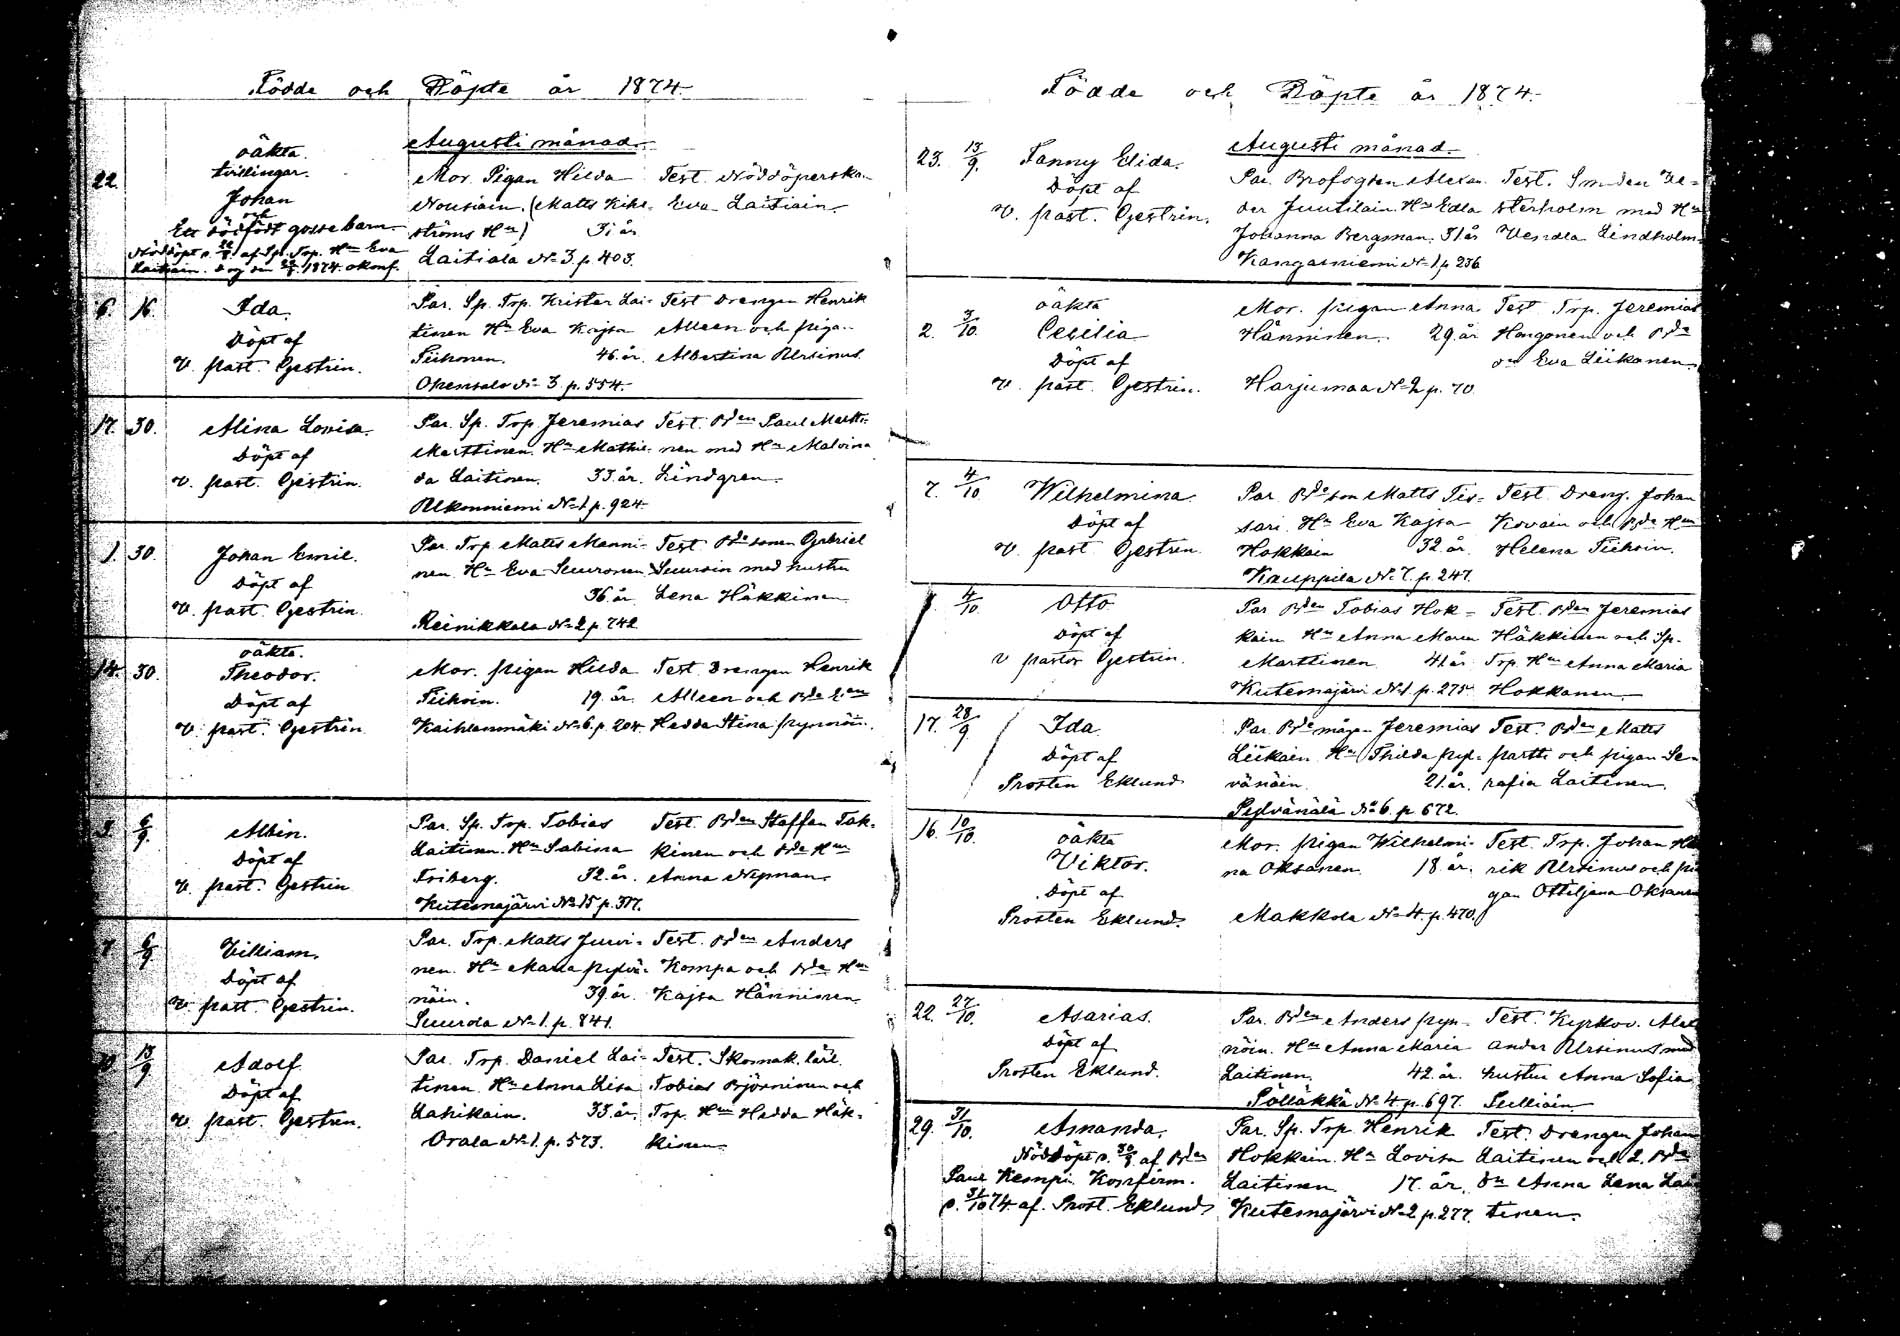 Födde och Döpte år 1874.
Augusti månad.
22.
oäkta.
tvillingar.
Johan
och
Ett dödfödt gossebarn
Nöddöpt af Sp. Trp. Hu Eva
Laitiain. 1874. okonf.
Mor. Pigan Hilda
Nousiain. (Matts Kihl-
ströms Hu) 31 år
Laitiala No 3 p. 403.
Test. Nöddöperskan
Eva Laitiain.
6. 16. Ida.
Döpt af
v. past. Gestrin.
Par. Sp. Trp. Krister Lai-
tinen Hu Eva Kajsa
Tiihonen. 46 år.
Okensalo No 3 p. 554.
Test Drengen Henrik
Alleen och piga
Albertina Ursinus.
17. 30. Alina Lovisa.
Döpt af
v. past. Gestrin.
Par. Sp. Trp. Jeremias
Marttinen. Hu Mathil-
da Laitinen. 33 år.
Ulkonniemi No 1 p. 924.
Test. Bden Paul Martti-
nen med Hu Malvina
Lindgren.
1. 30. Johan Emil.
Döpt af
v. past. Gestrin.
Par. Trp Matts Manni-
nen. Hu Eva Suuronen
36 år
Reinikkala No 2 p 742
Test. Bdesonen Gabriel
Suuroin med hustru
Lena Häkkinen
14. 30. oäkta.
Theodor.
Döpt af
v. past. Gestrin.
Mor. pigan Hilda
Tiihoin. 19 år.
Kaihlanmäki No 6. p. 204.
Test Drengen Henrik
Alleen och Bde
Hedda Stina Pynnöin.
3. 6/9. Albin.
Döpt af
v. past. Gestrin
Par. Sp. Trp. Tobias
Laitinen. Hu Sabina
Friberg. 32 år.
Kutemajärvi No 15 p. 317.
Test. Bden Staffan Tak-
kinen och Bde Hun
Anna Nepman.
7. 6/9 William.
Döpt af
v. past. Gestrin.
Par. Trp. Matts Jurvi-
nen. Hu Maria Pylvä-
näin. 39 år.
Suurola No 1. p. 841.
Test. Bden Anders
Kompa och Bde Hun
Kajsa Hänninen
10. 13/9 Adolf
Döpt af
v. past. Gestrin.
Par. Trp. Daniel Lai-
tinen. Hu Anna Lisa
Lahikain. 33 år.
Orala No 1. p. 573.
Test. Skomak. lärl.
Tobias Björninen och
Trp. Hun Hedda Häk-
kinen
Födde och Döpte år 1874.
Augusti månad.
23. 13/9. Fanny Elida.
Döpt af
v. past. Gestrin.
Par. Brofogden Alexan-
der Juutilain. Hu Edla
Johanna Bergman. 31 år
Kangasniemi No 1 p 236
Test. Smeden We-
sterholm med Hu
Wendla Lindholm.
2. 3/10. oäkta
Cecilia
Döpt af
v. past. Gestrin.
Mor. pigan Anna
Hänninen. 29 år
Harjumaa No 2 p. 70.
Test Trp. Jeremias
Hongonen och Bde
dn Eva Liikanen.
7. 4/10 Wilhelmina
Döpt af
v. past. Gestrin.
Par. Bdeson Matts Tis-
sari. Hu Eva Kajsa
Hokkain 32 år.
Kauppila No 7. p. 247.
Test Dreng. Johan
Kovain och Bde Hun
Helena Tiihoin.
4/10 Otto
Döpt af
v pastor Gestrin.
Par Bden Tobias Hok-
kain Hu Anna Maria
Marttinen 41 år
Kutemajärvi No 1. p. 275.
Test. Bden Jeremias
Häkkinen och Sp.
Trp. Hun Anna Maria
Hokkanen.
17. 28/9 Ida.
Döpt af
Prosten Eklund
Par. Bdemågen Jeremias
Liikain Hu Thilda Pyl-
vänäin. 21 år.
Pylvänälä No 6. p 672.
Test. Bden Matts
Partti och pigan Se-
rafia Laitinen.
16. 10/10. oäkta
Viktor.
Döpt af
Prosten Eklund.
Mor. pigan Wilhelmi-
na Oksanen 18 år.
Makkola No 4. p. 470.
Test. Trp. Johan Hen
rik Ursinus och pi
gan Ottiljana Oksanen
22. 27/10. Asarias.
Döpt af
Prosten Eklund.
Par. Bden Anders Pyn-
nöin. Hu Anna Maria
Laitinen. 42 år.
Pölläkkä No 4. p. 697.
Test. Kyrkov. Alex
ander Ursinus med
hustru Anna Sofia
Pulliain
29. 31/10. Amanda.
Nöddöpt d. 30/8 af Bden
Paul Kemppi. Konfirm.
d. 31/10 74. af. Prost. Eklund
Par. Sp. Trp. Henrik
Hokkain. Hu Lovisa
Laitinen 17 år.
Kutemajärvi No 2 p. 277.
Test. Drengen Johan
Laitinen och L. Bde
dn Anna Lena Lai
tinen.